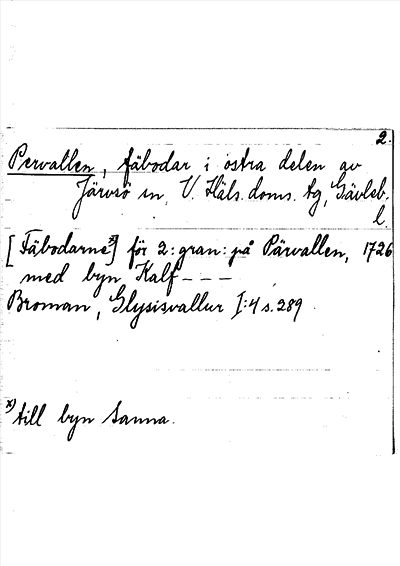 2.
Pervallen, fäbodar i östra delen av
Järvsö sn, V. Häls. doms. tg, Gävleb.
l.
[Fäbodarne x)] för 2: gran: på Pärvallen, 1726
med byn Kalf - - -
Broman, Glysisvallur I:4 s. 289.
x) till byn Sanna.